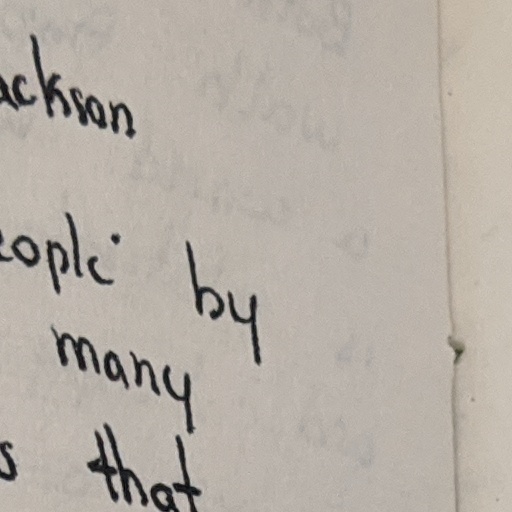 ackson
eople by
many
s that